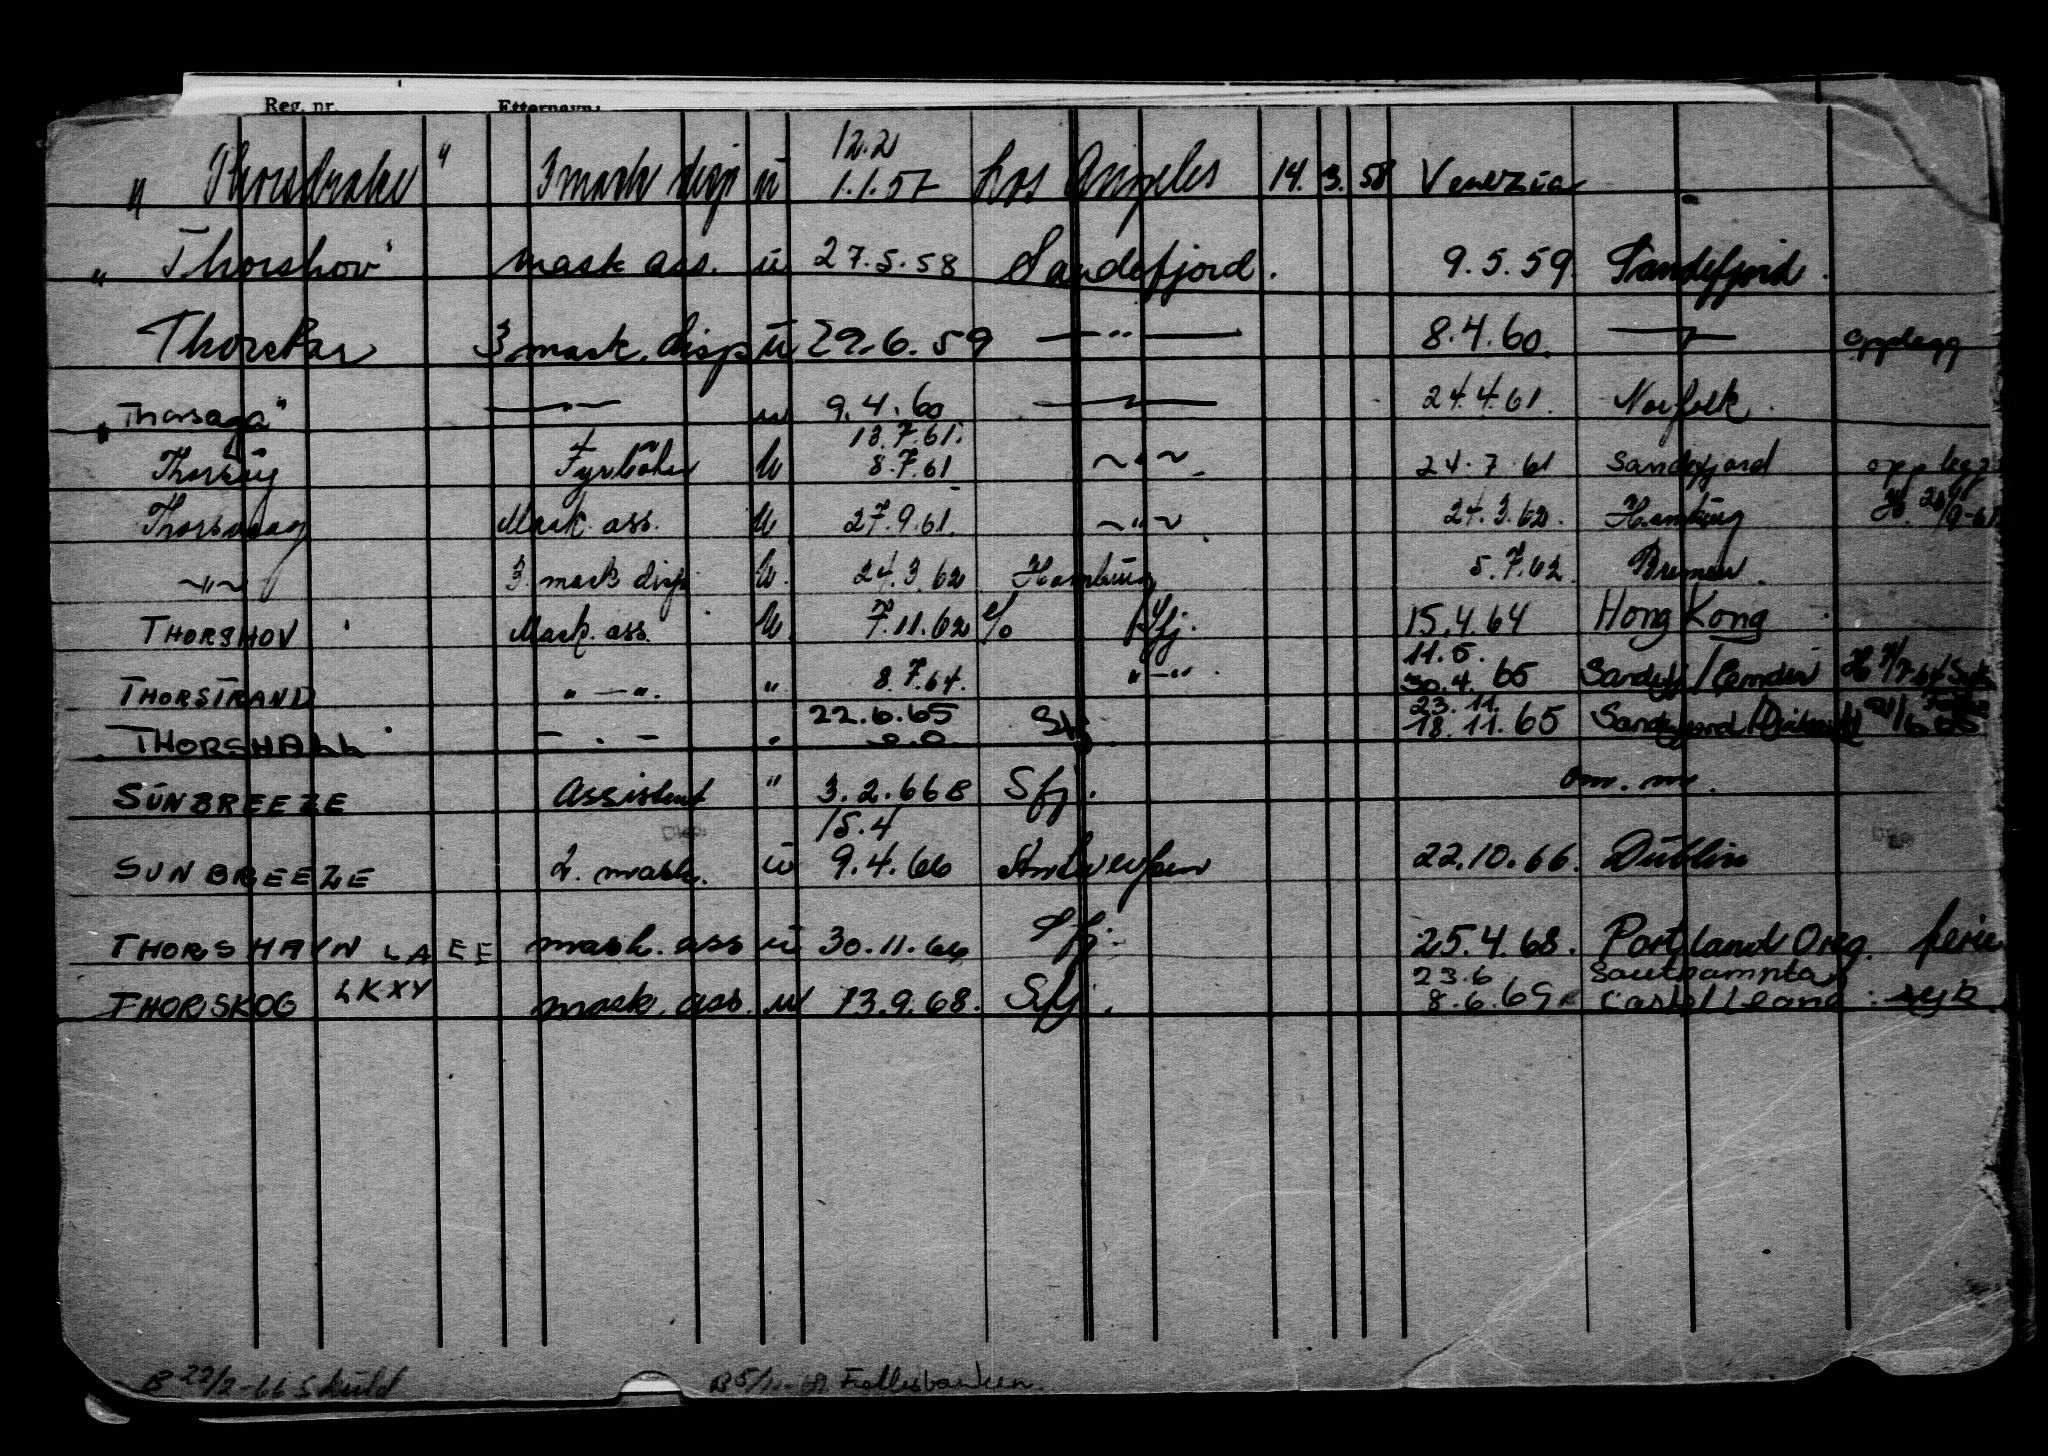 Reg. nr. Etternavn:
12.2
" Thorsdrake " 3 mask disp ü 1.1.57 Los Angeles 14. 3. 58 Venezia
" Thorshov" mask ass. ü 27.5.58 Sandefjord. 9.5.59. Sandefjord.
Thorskar 3 mask. disp ü 29.6.59 — " — 8.4.60. — " — opplegg
"Thorsaga" — " — u 9.4.60 — " — 24.4.61. Norfolk.
13.7.61.
Fyrbøter ü 8.7.61 ~ " ~ 24.7.61 Sandefjord opplegg
Mask. ass. ü 27.9.61. ~ " ~ 24.3.62. Hamburg
~ " ~ 3. mask disp ü. 24.3.62 Hamburg 5.7.62. Bremen.
THORSHOV Mask. ass. ü. 7.11.62 Sfj. 15.4.64 Hong Kong
11.5.
THORSTRAND " — ". " 8.7.64. " — " . 30.4.65 Sandefj /
22.6.65 23.11.
THORSHALL — . — 18.11.65 Sandefjord
SUNBREEZE Assistent " 3.2.66 Sfj. om. m.
15.4
SUNBREEZE 2. mask. ü 9.4.66 Antwerpen 22.10.66. Dublin
THORSHAVN LAEE mask. ass ü 30.11.66 Sfj. 25.4.68. Portland Oreg. ferie
23.6 Southampton
THORSKOG LKXY mask. ass. u 13.9.68. Sfj. 8.6.69 : syk
B 22/2-66 Skuld B 5/11-68 Fellesbanken.